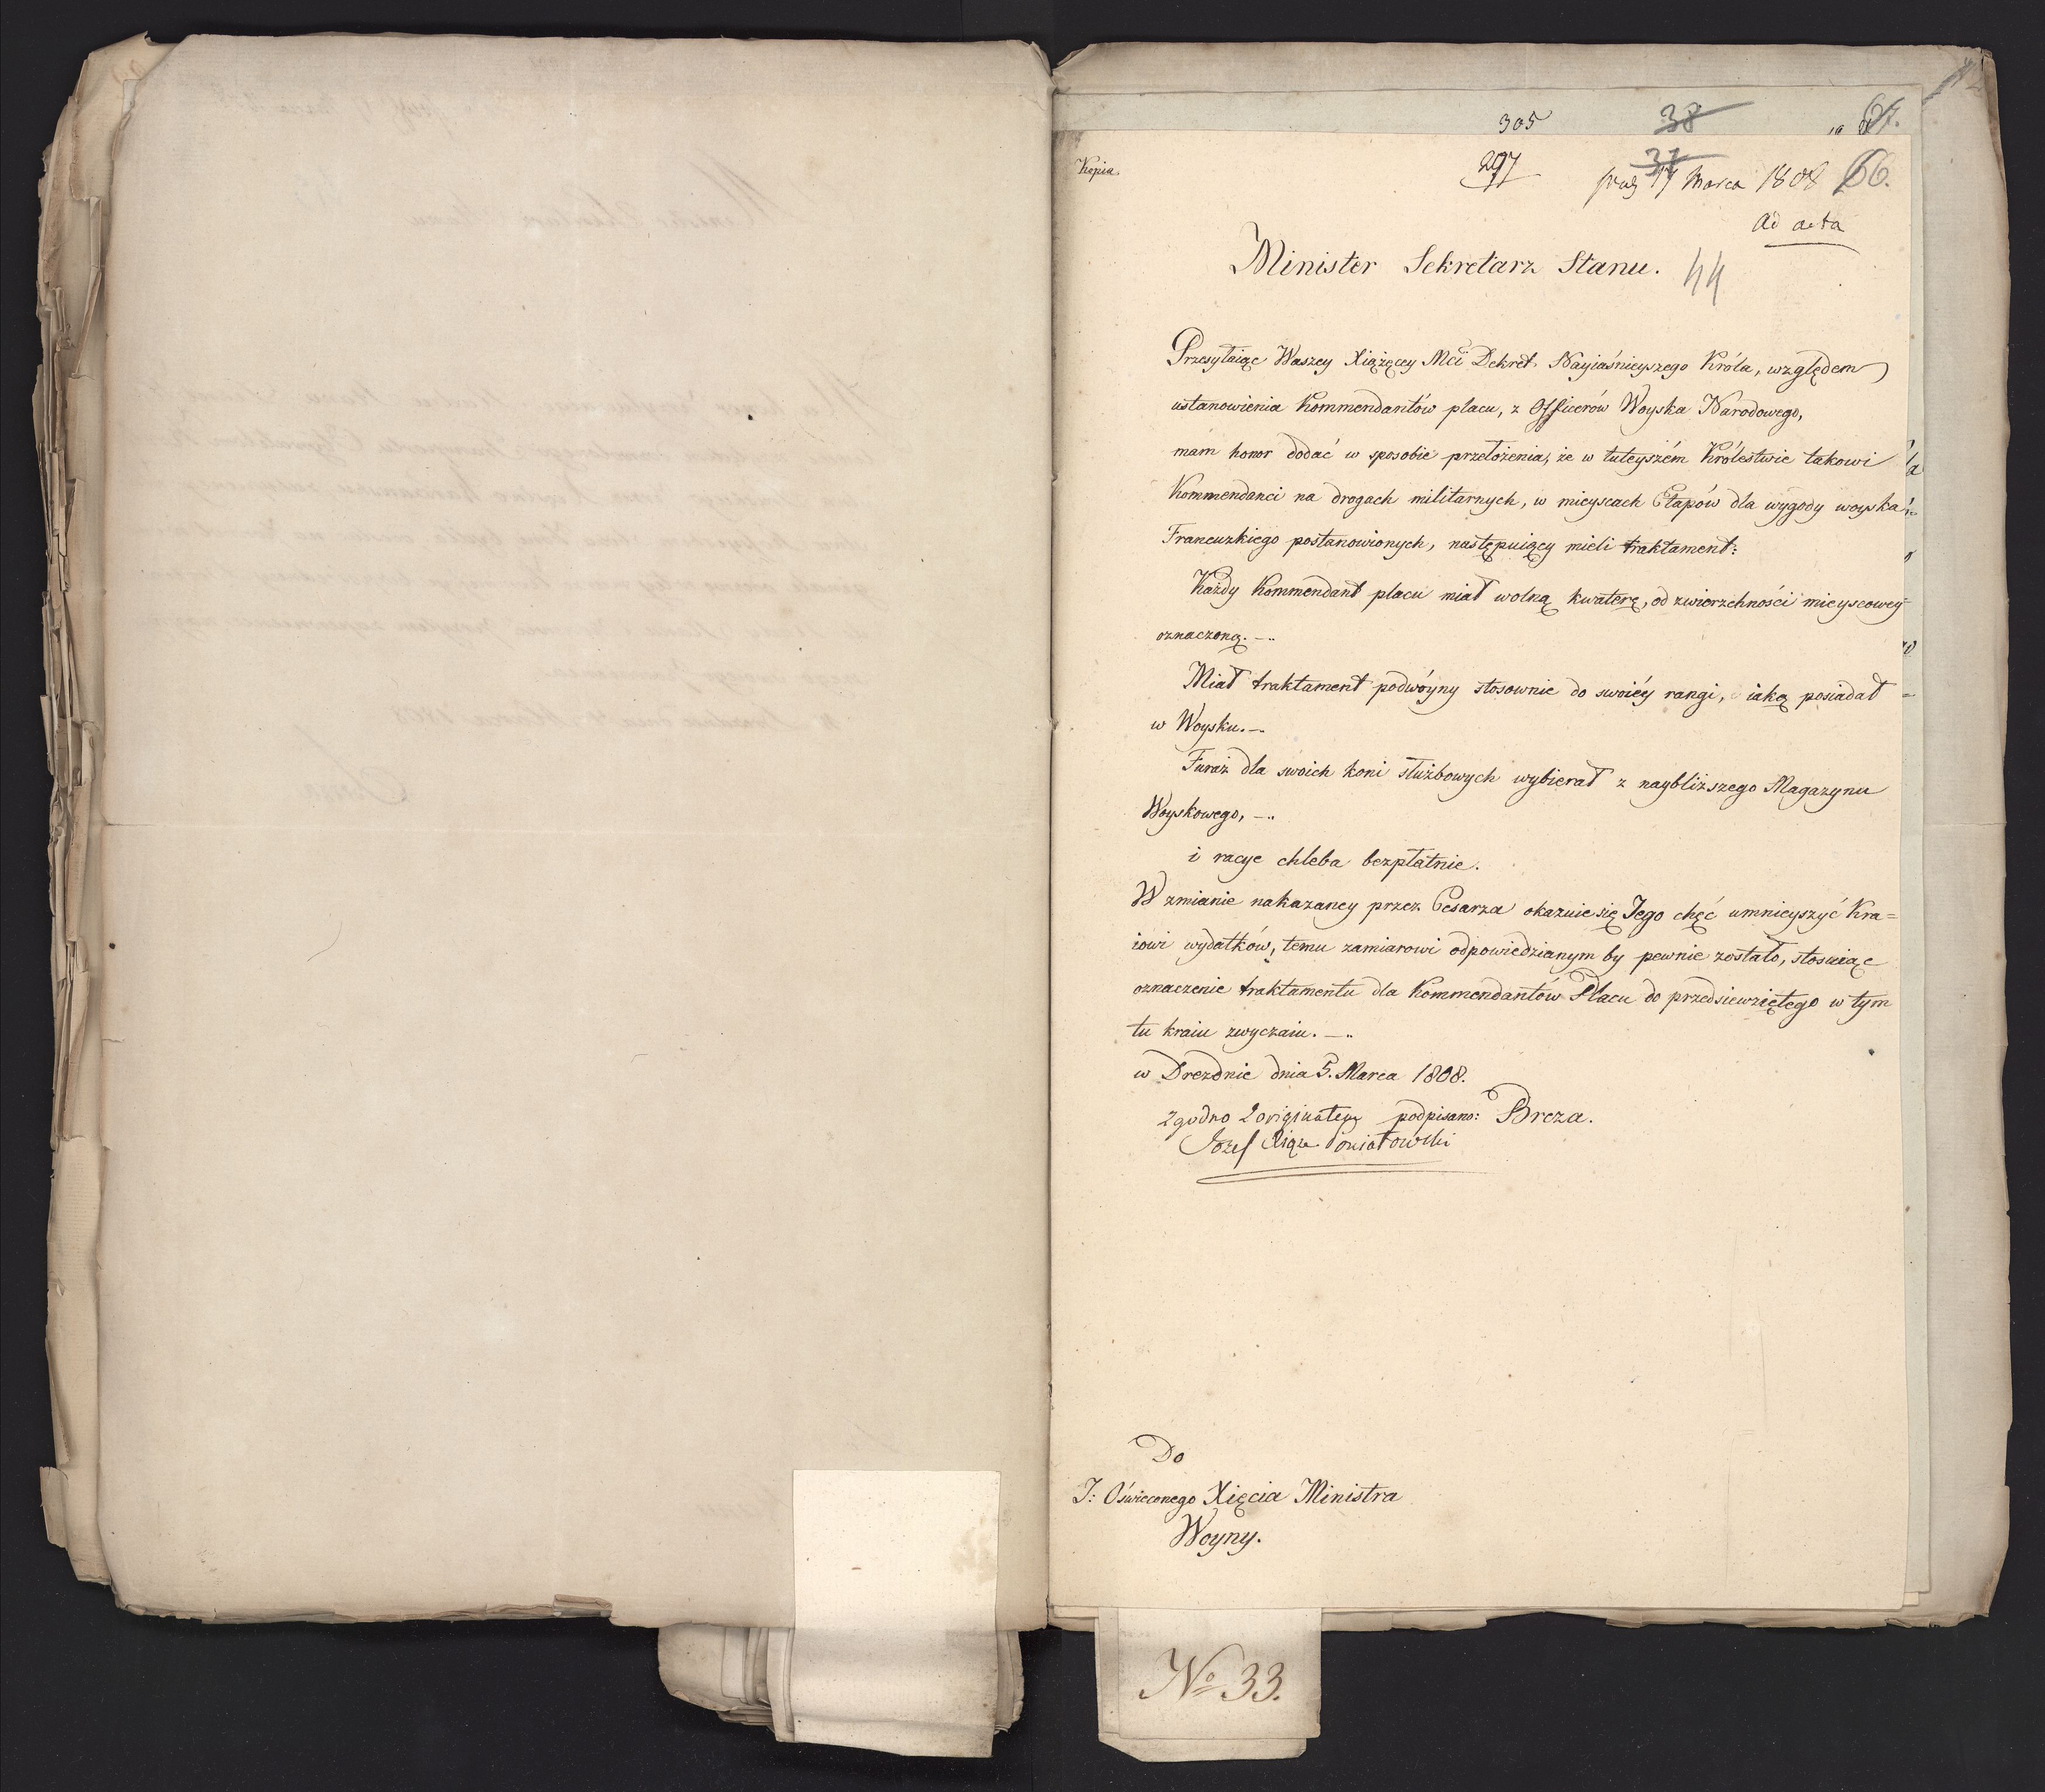 305 38 67.
Kopia.
297 37 66.
praes 17 Marca 1808
Ad acta
Minister Sekretarz Stanu. 44
Przesyłaiąc Waszey Xiążęcey Mci Dekret Nayiaśnieyszego Króla, względem
ustanowienia Kommendantów placu, z Officerów Woyska Narodowego,
mam honor dodać w sposobie przełożenia, że w tuteyszém Królestwie takowi
Kommendanci na drogach militarnych, w mieyscach Etapów dla wygody woyska
Francuzkiego postanowionych, następuiący mieli traktament:
Każdy Kommendant placu miał wolną kwaterę, od zwierzchności mieyscowey
oznaczoną. —..
Miał traktament podwóyny stosownie do swoiéy rangi, iaką posiadał
w Woysku. —.
Furaż dla swoich koni służbowych wybierał z naybliższego Magazynu
Woyskowego, —..
i racye chleba bezpłatnie.
W zmianie nakazaney przez Cesarza okazuie się Jego chęć umnieyszyć Kra=
iowi wydatków, temu zamiarowi odpowiedzianym by pewnie zostało, stosuiąc
oznaczenie traktamentu dla Kommendantów Placu do przedsiewziętego w tym
tu kraiu zwyczaiu. —..
w Dreznie dnia 5. Marca 1808.
zgodno z originałem podpisano: Breza.
Józef Xiąże Poniatowski
Do
J: Oświeconego Xięcia Ministra
Woyny.
No 33.